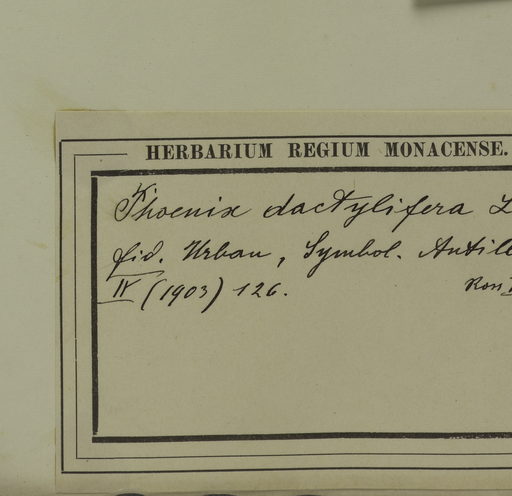 HERBARIUM REGIUM MONACENSE.
Phoenix dactylifera L
fid. Urban, Symbol. Antill
IV (1903) 126.